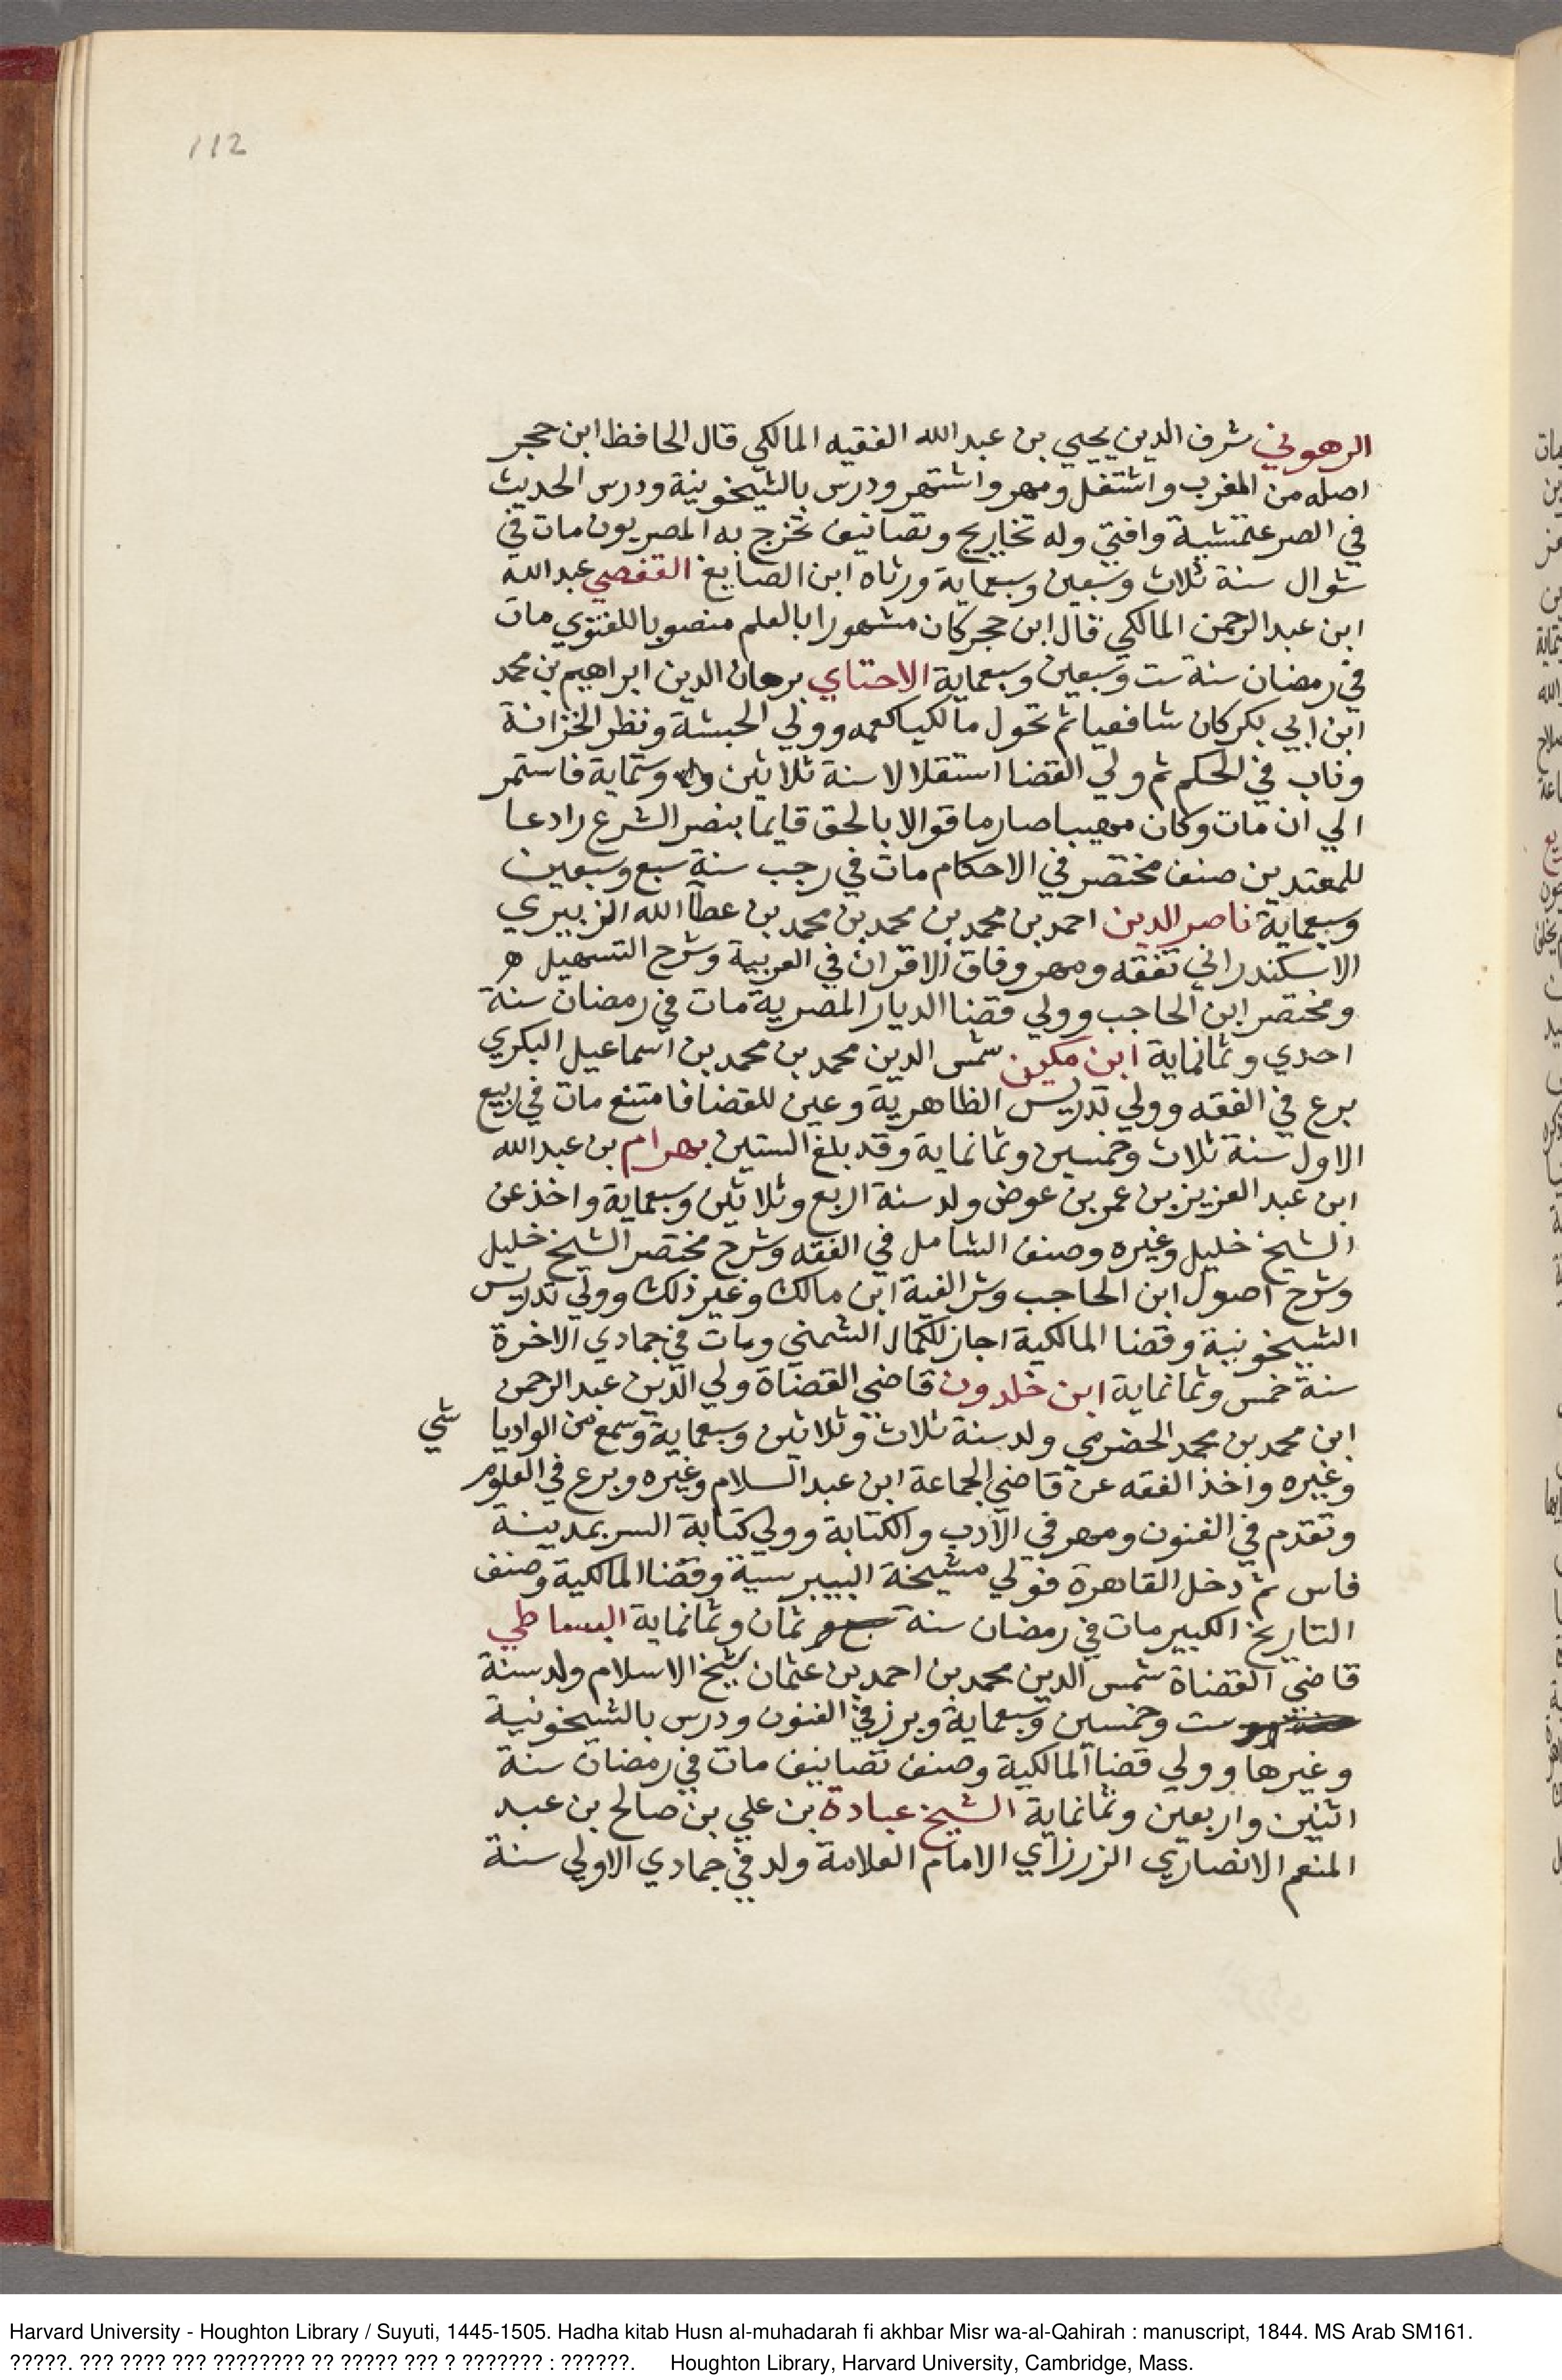 112
الرهوني شرف الدين يحيي بن عبدالله الفقيه المالكي قال الحافظ ابن حجر
اصله من المغرب واشتغل ومهر واشتهر ودرس بالشيخونية ودرس الحديث
في الصرغتمشية وافتي وله تخاريج وتصانيف تخرج به المصريون مات في
شوال سنة ثلاث وسبعين وسبعماية ورثاه ابن الصايغ القفصي عبدالله
ابن عبدالرحمن المالكي قال ابن حجر كان مشهورا بالعلم منصوبا للفتوي مات
في رمضان سنة ست وسبعين وسبعماية الاحناي برهان الدين ابراهيم بن محمد
ابن ابي بكر كان شافعيا ثم تحول مالكيا كعمه وولي الحبشة ونظر الخزانة
وناب في الحكم ثم ولي القضا استقلالا سنة ثلاثين وستماية فاستمر
الي ان مات وكان مهيبا صارما قوالا بالحق قايما بنصر الشرع رادعا
للمعتدين صنف مختصر في الاحكام مات في رجب سنة سبع وسبعين
وسبعماية ناصر الدين احمد بن محمد بن محمد بن محمد بن عطاالله الزبيري
الاسكندراني تفقه ومهر وفاق الاقران في العربية وشرح التسهيل
ومختصر ابن الحاجب وولي قضا الديار المصرية مات في رمضان سنة
احدي وثمانماية ابن مكين شمس الدين محمد بن محمد بن اسماعيل البكري
برع في الفقه وولي تدريس الظاهرية وعين للقضا فامتنع مات في ربيع
الاول سنة ثلاث وخمسين وثمانماية وقد بلغ الستين بهرام بن عبدالله
ابن عبد العزيز بن عمر بن عوض ولد سنة اربع وثلاثين وسبعماية واخذ عن
الشيخ خليل وغيره وصنف الشامل في الفقه وشرح مختصر الشيخ خليل
وشرح اصول ابن الحاجب وشر الفية ابن مالك وغير ذلك وولي تدريس
الشيخونية وقضا المالكية اجاز للكمال الشمني ومات في جمادي الاخرة
سنة خمس وثمانماية ابن خلدون قاضي القضاة ولي الدين عبد الرحمن
ابن محمد بن محمد الحضرمي ولد سنة ثلاث وثلاثين وسبعماية وسمع من الواديا شي
وغيره واخذ الفقه عن قاضي الجماعة ابن عبد السلام وغيره وبرع في العلوم
وتقدم في الفنون ومهر في الادب والكتابة وولي كتابة السر بمدينة
فاس ثم دخل القاهرة فولي مشيخة البيبرسية وقضا المالكية وصنف
التاريخ الكبير مات في رمضان سنة ثمان وثمانماية البساطي
قاضي القضاة شمس الدين محمد بن احمد بن عثمان شيخ الاسلام ولد سنة
ست وخمسين وسبعماية وبرز في الفنون ودرس بالشيخونية
وغيرها وولي قضا المالكية وصنف تصانيف مات في رمضان سنة
اثنين واربعين وثمانماية الشيخ عبادة بن علي بن صالح بن عبد
المنعم الانصاري الزرزاي الامام العلامة ولد في جمادي الاولي سنة
Harvard University - Houghton Library / Suyuti, 1445-1505. Hadha kitab Husn al-muhadarah fi akhbar Misr wa-al-Qahirah : manuscript, 1844. MS Arab SM161.
?????. ??? ???? ??? ???????? ?? ????? ??? ? ??????? : ??????. Houghton Library, Harvard University, Cambridge, Mass.